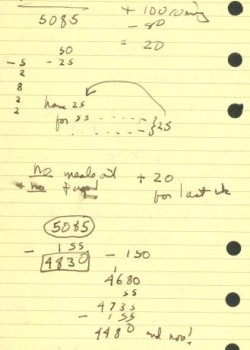 5085
+ 100
- 80
= 20
50
- 5 - 25
2
8
2
2
have 25
for 55 - - - - - }25
no meals out + 20
+ no for last wk
5085
- 155
4830 - 150
4680
55
4735
- 155
4480 and now!